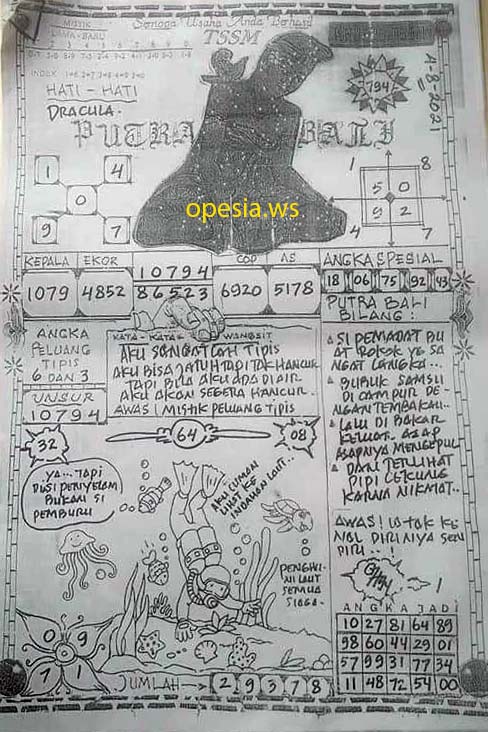 Semoga Usaha Anda Berhasil
TSSM
MISTIK
LAMA - BARU
INDEX
HATI - HATI
DRACULA.
PUTRA BALI
794
A-8-2021
1 4
0
9 7
opesia.ws
1 8
5 0
9 2
4 7
KEPALA EKOR COP AS ANGKA SPESIAL
1079 4852 10794 6920 5178
86523
18 06 75 92 43
PUTRA BALI
BILANG:
ANGKA
PELUANG
TIPIS
6 DAN 3
UNSUR
10794
KATA - KATA WANGSIT
AKU SANGATLAH TIPIS
AKU BISA JATUH TAPI TAK HANCUR
TAPI BILA AKU ADA DI AIR
AKU AKAN SEGERA HANCUR.
AWAS! MISTIK PELUANG TIPIS
SI PEMADAT BU
AT ROKOK YG SA
NGAT LANGKA...
BUBUK SAMSU
DI CAMPUR DE-
NGAN TEMBAKAU..
LALU DI BAKAR
KELUAR ASAP
ASAPNYA MENGEPUL
DAN TERLIHAT
PIPI CEKUNG
KARNA NIKMAT..
AWAS!
NOL DIRINIYA SEN
DIRI..!
32
64
08
YA... TAPI
DISI PENYELAM
BUKAN SI
PEMBURU
AKU CUMAN
LIHAT KE
INDAHAN LAUT..
PENGHU-
NI LAUT
SEMUA
SIAGA.
0 9
7 1
JUMLAH → 2 9 3 7 8
ANGKA JADI
10 27 81 64 89
98 60 44 29 01
57 99 31 77 34
11 48 72 54 00